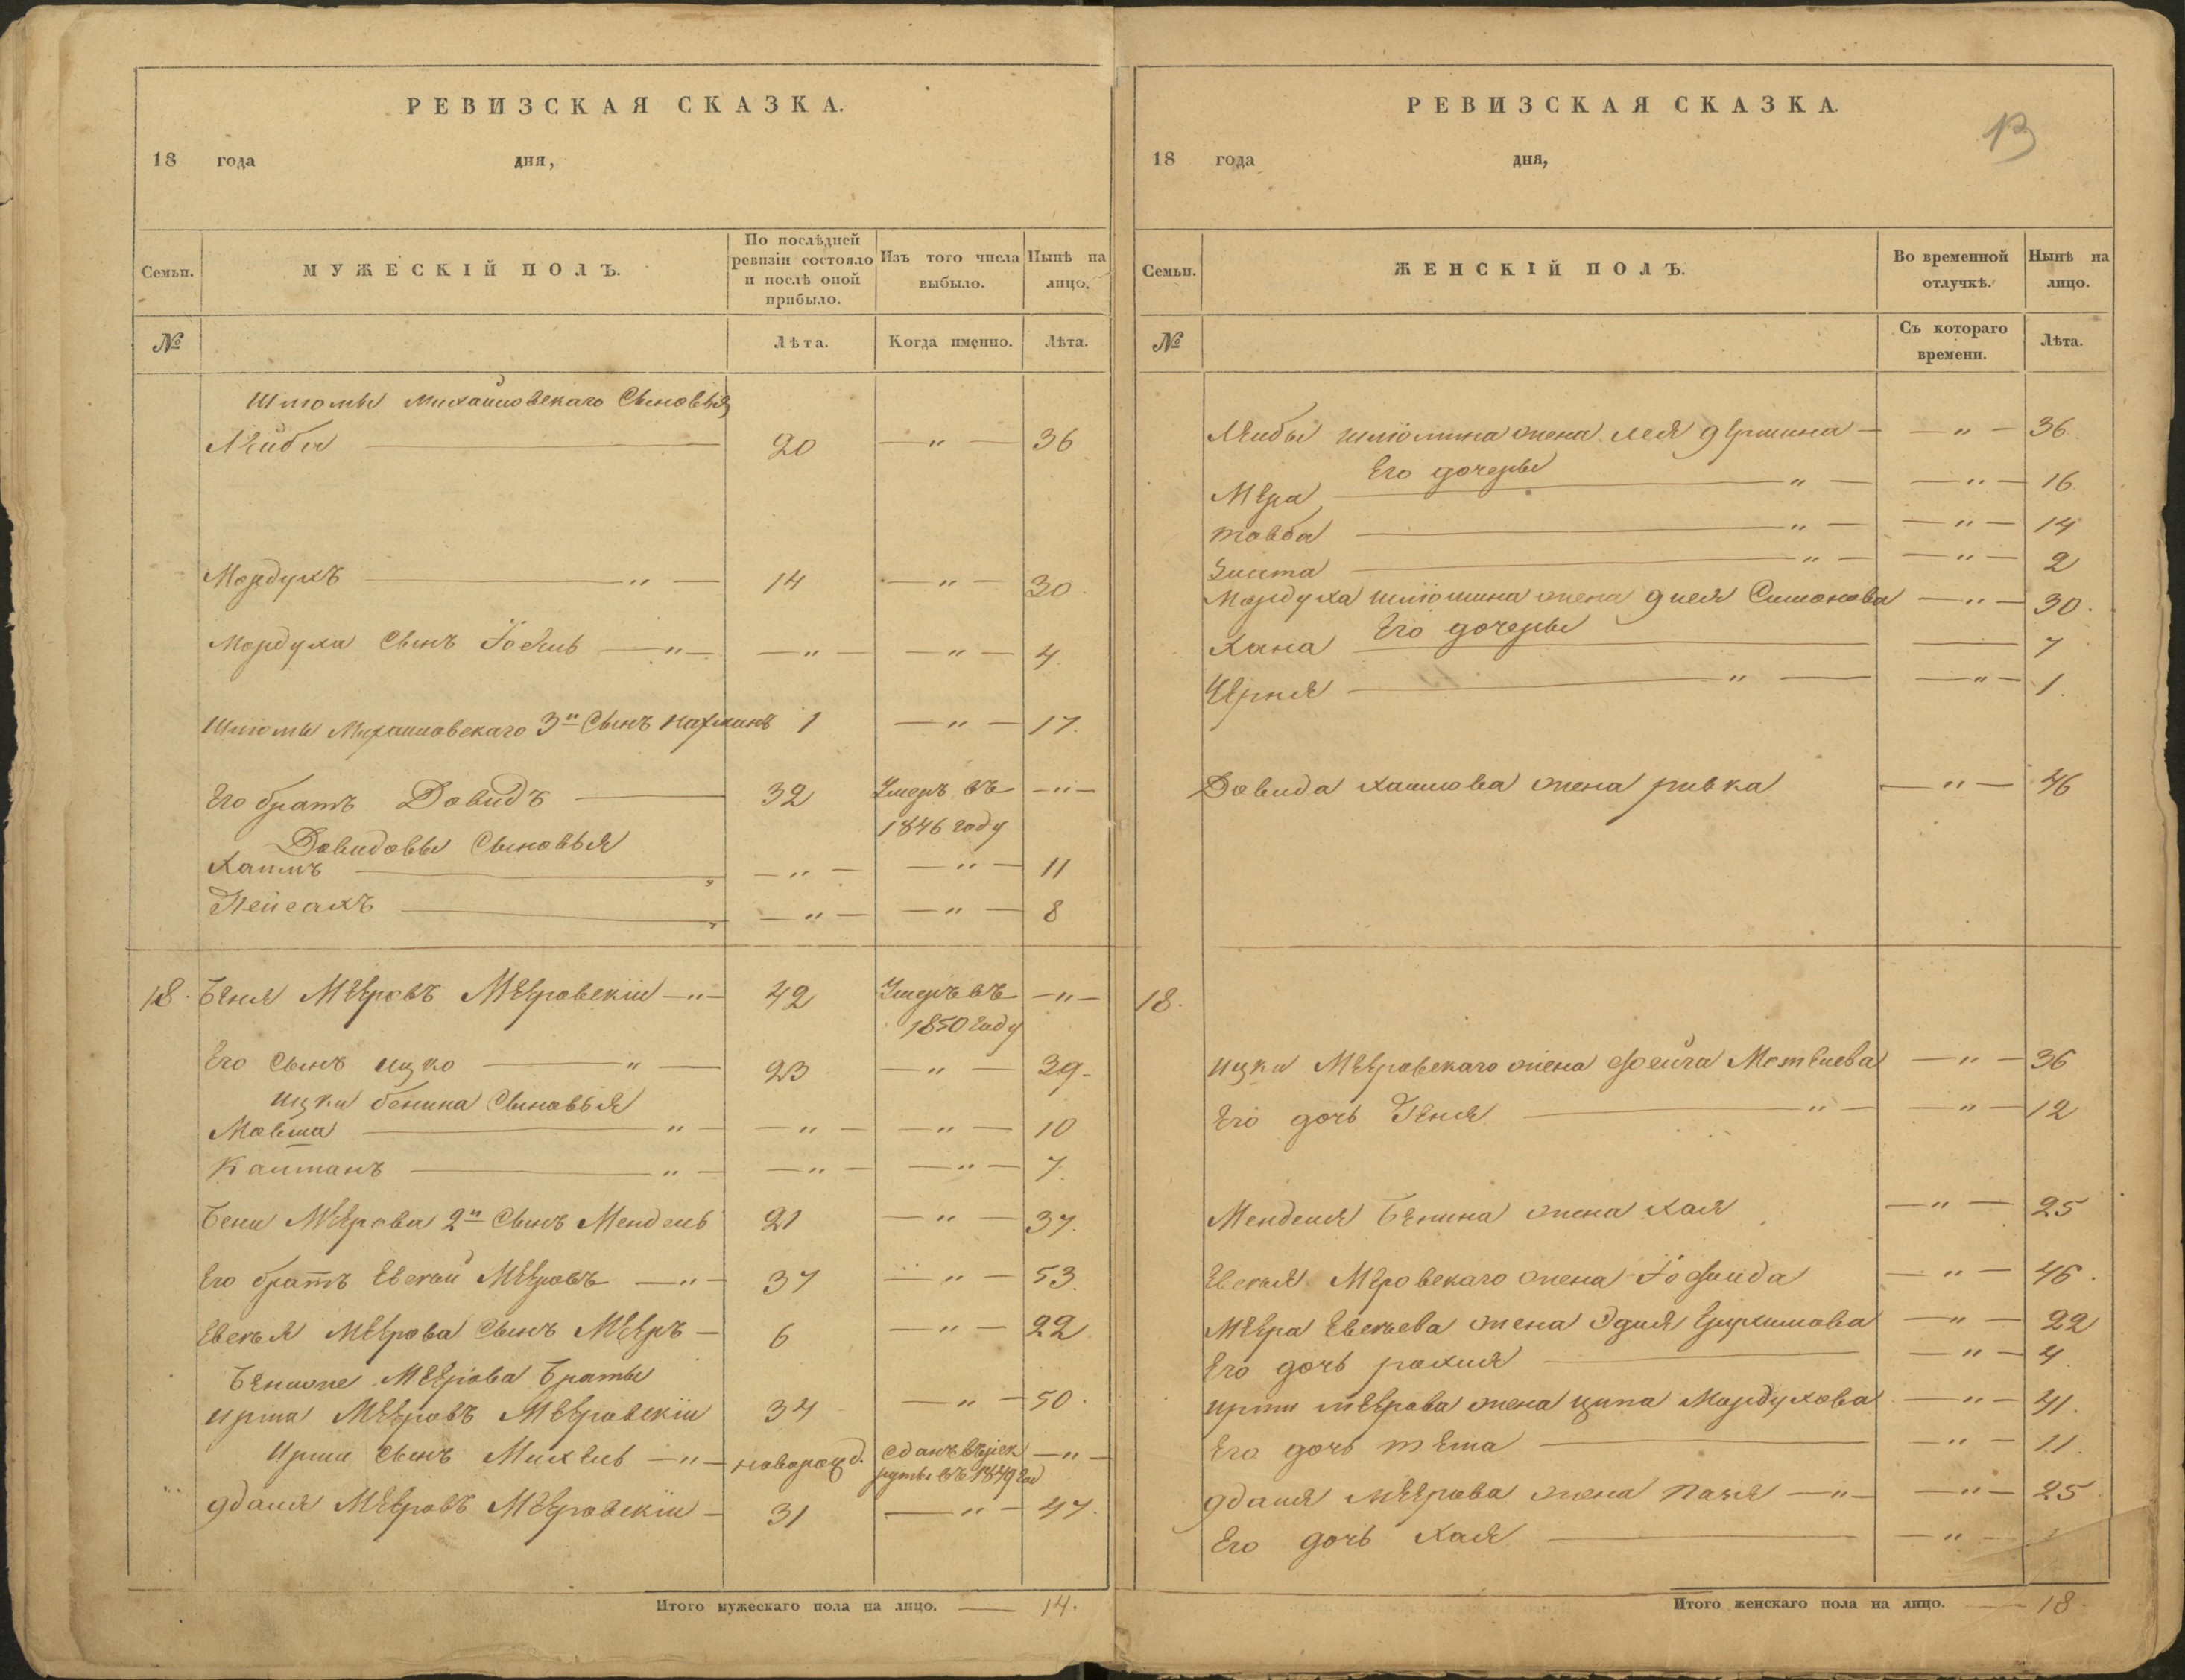 РЕВИЗСКАЯ СКАЗКА.
18 года дня,
Семьи. МУЖЕСКІЙ ПОЛЪ. По послѣдней ревизіи состояло и послѣ оной прибыло. Изъ того числа выбыло. Нынѣ на лицо.
№ Лѣта. Когда именно. Лѣта.
Шліомы Михаиловскаго Сыновья
Лейба — 20 — " — 36
Мордухъ — " — 14 — " — 30.
Мордуха Сынъ Іосель — " — — " — — " — 4.
Шлюмы Михаиловскаго 3й Сынъ Нахманъ 1 — " — 17.
Его братъ Довидъ — 32 Умеръ въ — " —
1846 году
Довидовы Сыновья
Хаимъ — " — " — — " — 11
Пейсахъ — " — " — — " — 8
18. Беня Мееровъ Мееровскій — " — 42 Умеръ въ — " —
1850 году
Его Сынъ Ицко — " — 23 — " — 39.
Ицки Бенина Сыновья
Мовша — " — — " — — " — 10
Калманъ — " — — " — — " — 7.
Бени Меерова 2й Сынъ Мендель 21 — " — 37.
Его братъ Евсей Мееровъ — " — 37 — " — 53.
Меерова Сынъ Мееръ — 6 — " — 22.
Меерова Браты
Ирша Мееровъ Мееровскій 34 — " — 50.
Ирши Сынъ Михель — " — новорожд. Сданъ въ рек — " —
руты въ 1849 год
Мееровъ Мееровскій — 31 — " — 47.
Итого мужескаго пола на лицо. — 14.
РЕВИЗСКАЯ СКАЗКА.
13
18 года дня,
Семьи. ЖЕНСКІЙ ПОЛЪ. Во временной отлучкѣ. Нынѣ на лицо.
№ Съ котораго времени. Лѣта.
Лейбы Шлюмина жена Лея — — " — 36.
Его дочеры
Мера — " — — " — 16
Товба — " — — " — 14
Злата — " — — " — 2
Мордуха Шлюмина жена Симонова — " — 30.
Его дочеры
Хана — — 7
Черня — " — — " — 1.
Довида Хаимова жена Ривка — " — 46
18.
Ицки Мееровскаго жена Фейга — " — 36
Его дочь Геня — " — — " — 12
Менделя Бенина жена Хая — " — 25
Меровскаго жена — " — 46.
Меера жена — " — 22
Его дочь Рахля — — " — 4
Ирши Меерова жена Ципа Мордухова — " — 41.
Его дочь Тема — — " — 11.
Меерова жена — " — — " — 25
Его дочь Хая — — " —
Итого женскаго пола на лицо. — 18.